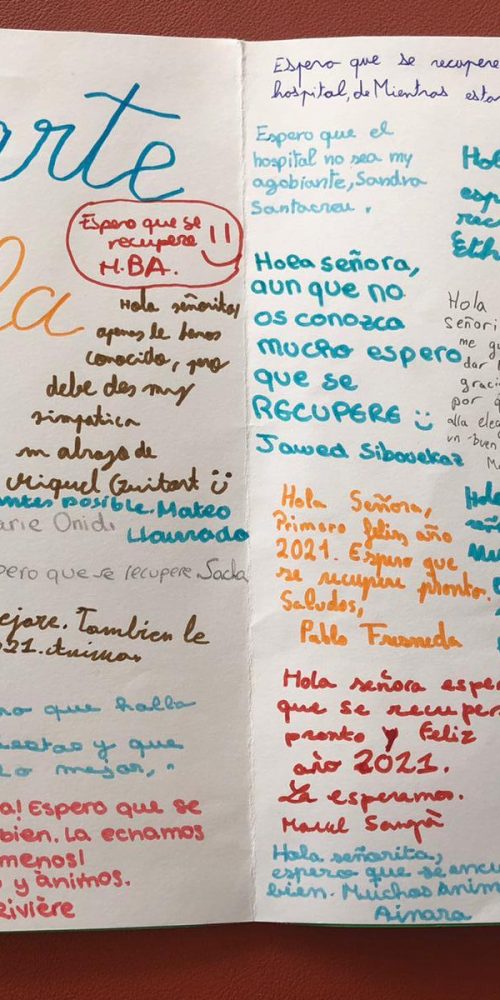 arte
la
Espero que se
recupere
M.BA.
Hola señorita,
apenas le hemos
conocido, pero
debe des muy
simpatica
un abrazo de
Miquel Guitart
antes posible. Mateo
Llaurado
arie Onidi
pero que se recupere. Sacha
ejore. Tambien le
021. Animos
ro que halla
uestas y que
lo mejor,
a! Espero que se
bien. La echamos
menos!
y ànimos.
Rivière
Espero que se recupere
hospital, de Mientras esta
Espero que el
hospital no sea my
agobiante, Sandra
Santacreu.
Hol
esp
rec
Eth
Hoea señora,
aun que no
os conozca
mucho espero
que se
RECUPERE
Jawed Sibouekaz
Hola
señori
me gu
dar l
graci
por q
alla ele
un buen
M
Hola Señora,
Primero felin año
2021. Espero que
se recupere pronto.
Saludos,
Pablo Fresneda
Hola
señ
Mu
Hola señora espe
que se recuper
pronto y Feliz
año 2021.
La esperamos.
Marcel
Hola señorita,
espero que se encu
bien. Muchos Anim
Ainara